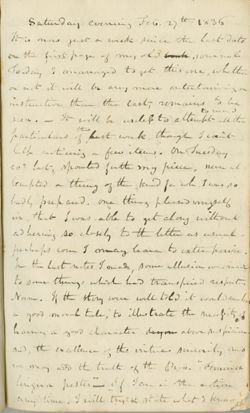 Saturday evening Feb. 27th 1836
It is now just a week since the last date
on the first page of my old book, journal
Today I managed to get this one, whether
or not it will be any more entertaining or
instruction than the last, remains to be
seen. – It will be useless to attempt all the
particulars of the last week, though I can't
help noticing a few items. On Tuesday
last, spouted forth my piece, never
attempted a thing of the kind for wh. I was so
badly prepared. One thing pleased myself
in, that I was able to get along without
adhering so closely to the letter as usual –
perhaps now I may learn to extemporise.
In the last notes I made, some allusion was made
to something which had transpired respect.
Nason. If the story were well told it would make
a good moral tale, to illustrate the necessity of
having a good character above suspicion
and, the excellence of the virtue sincerity and
we may add the truth of the
lingua If I am in the action
any time, I will try to state what I know of